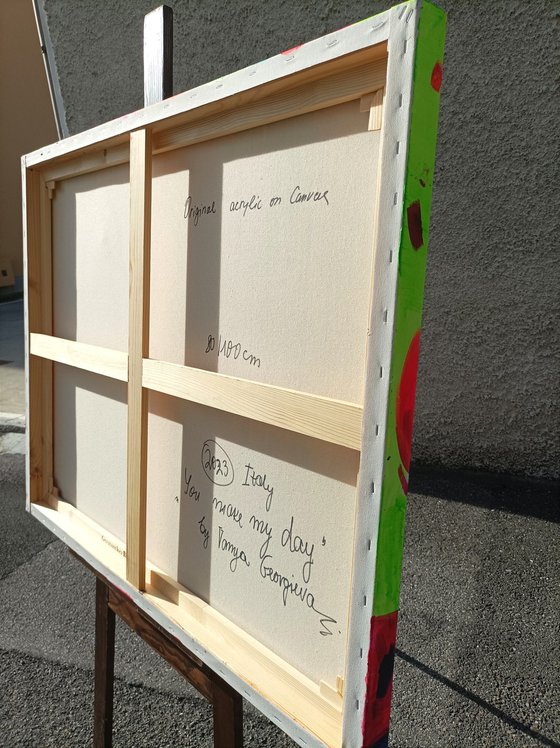 Original acrylic on Canvas
80/100 cm
2023 Italy
"You make my day"
by Tanya Georgieva